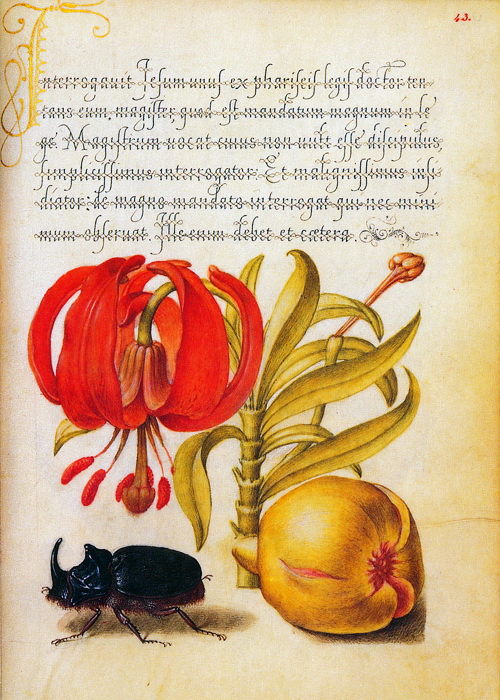 43.
Interrogauit Jesum unus ex phariseis legis doctor ten
tans eum, magister quod est mandatum magnum in le
ge. Magistrum vocat cuius non vult esse discipulus,
simplicissimus interrogator. Et malignissimus insi
diator, de magno mandato interrogat, qui nec mini
mum obseruat. Ille enim debet et cætera.